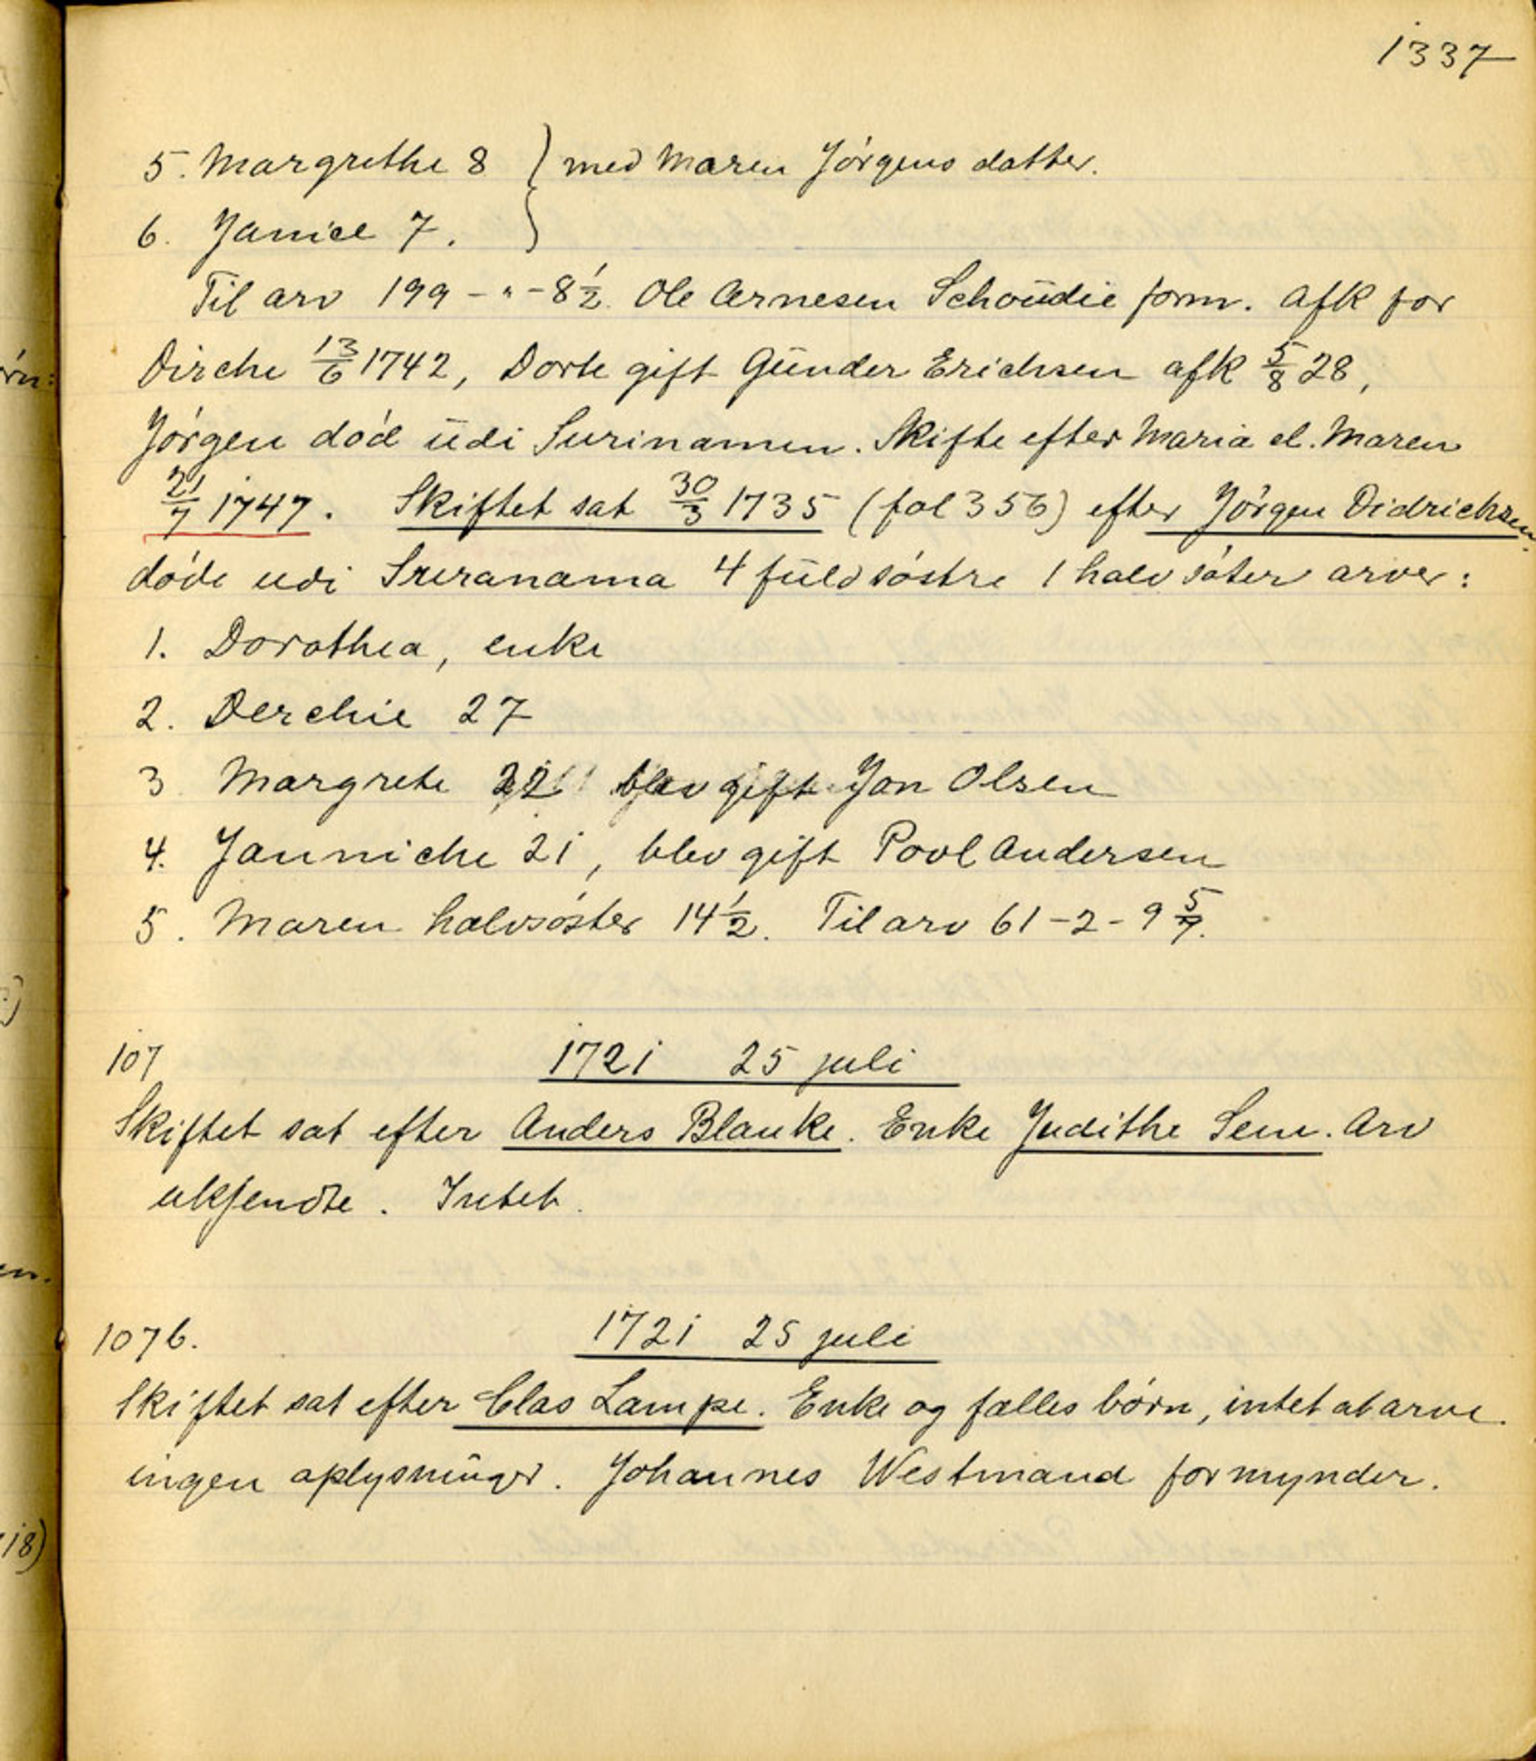 1337
5. Margrethe 8 } med Maren Jörgens datter.
6. Janice 7. }
Til arv 199 - " - 8 1/2. Ole Arnesen Schoudie form. Afk for
Dirche 13/6 1742, Dorte gift Günder Erichsen afk 5/8 28,
Jörgen död üdi Surinamen. Skifte efter Maria el. Maren
21/7 1747. Skiftet sat 30/3 1735 (fol 356) efter Jörgen Didrichsen
döde udi Sreranama 4 füldsöstre 1 halv söter arver:
1. Dorothea, enke
2. Derchie 27
3 Margrete 22 blev gift Jan Olsen
4. Janniche 21, blev gift Povl Andersen
5. Maren halvsöster 14 1/2. Til arv 61 - 2 - 9 5/7.
107 1721 25 juli
Skiftet sat efter Anders Blanke. Enke Judithe Sem. Arv
ukjendte. Intet.
107b. 1721 25 juli
Skiftet sat efter Clas Lampe. Enke og fælles börn, intet at arve.
ingen oplysninger. Johannes Westmand formynder.